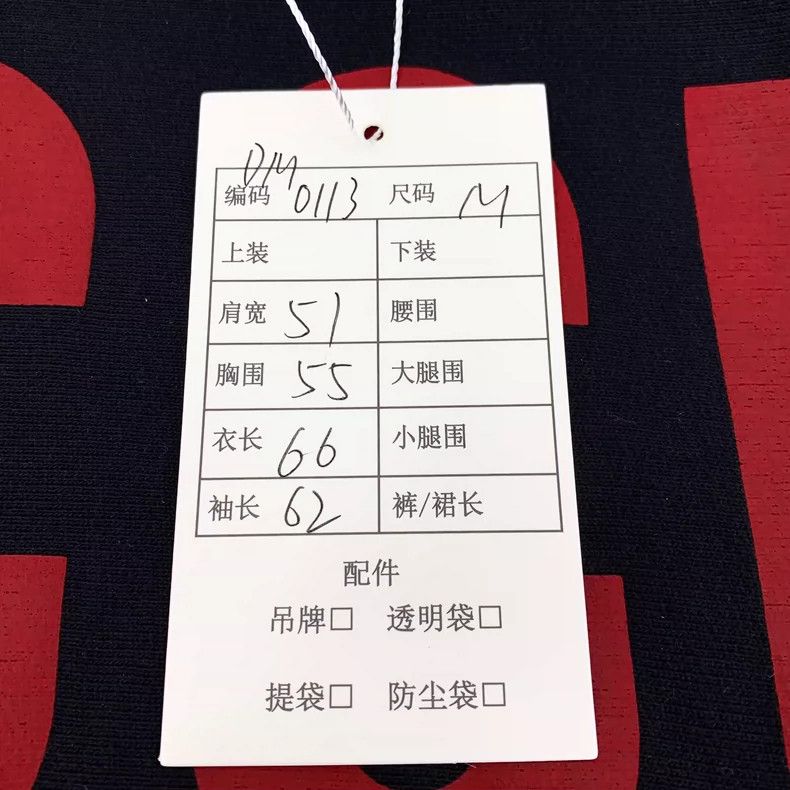 DM
编码 0113 尺码 M
上装 下装
肩宽 51 腰围
胸围 55 大腿围
衣长 66 小腿围
袖长 62 裤/裙长
配件
吊牌□ 透明袋□
提袋□ 防尘袋□